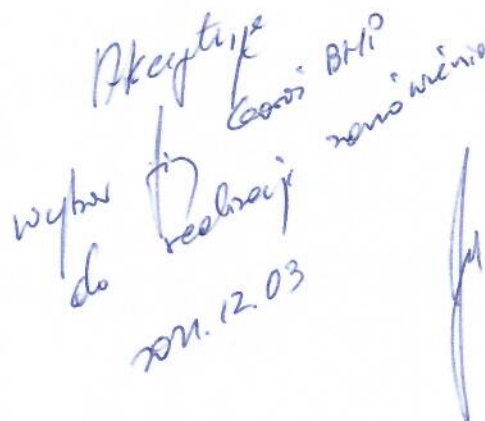 Akceptuję
wybór BHP
do realizacji zamówienia
2021.12.03